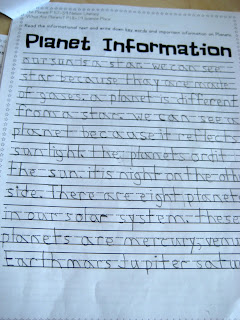 Read the informational text and write down key words and important information on Planets
Planet Information
our sun is a star. we can see
star because thay are made
of gases. a planet is different
from a star. we can see a
planet because it reflects
sunlight. the planets ordit
the sun. it is night on the oth
side. There are eight planet
in our solar system. these
planets are mercury, venu
Earth mars Jupiter satu